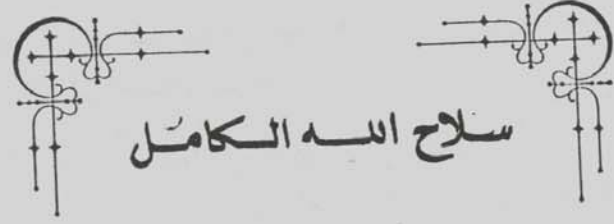 سلاح الله الكامل